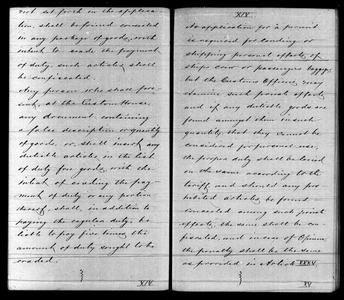 not set forth in the applica-
tion, shall be found concealed
in any package of goods, with
intent to evade the payment
of duty, such articles shall
be confiscated.
Any person who shall pre-
sent, at the Custom House,
any document containing
a false description or quantity
of goods, or, shall insert any
dutiable articles in the list
of duty free goods, with the
intent of evading the pay-
ment of duty or any portion
thereof, shall, in addition to
paying the regular duty, be
liable to pay five times the
amount of duty sought to be
evaded.
XIV.
XIV.
An application for a permit
is required for landing or
shipping personal effects, of
ships crew or passengers luggage,
but the Customs Officers may
examine such private effects,
and if any dutiable goods are
found amongst them in such
quantity that they cannot be
considered for personal use,
the proper duty shall be levied
on the same according to the
tariff, and should any pro-
hibited articles, be found
concealed among such private
effects, the same shall be con-
fiscated, and in case of Opium,
the penalty shall be the same
as provided in Article XXXV.
XV